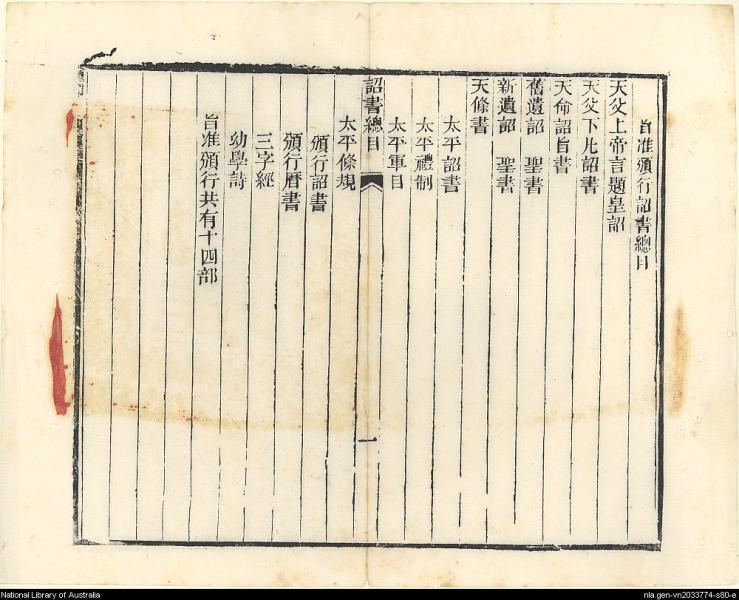 旨准頒行詔書總目
天父上帝言題皇詔
天父下凡詔書
天命詔旨書
舊遺詔 聖書
新遺詔 聖書
天條書
太平詔書
太平禮制
太平軍目
詔書總目 一
太平條規
頒行詔書
頒行曆書
三字經
幼學詩
旨准頒行共有十四部
National Library of Australia
nla.gen-vn2033774-s80-e